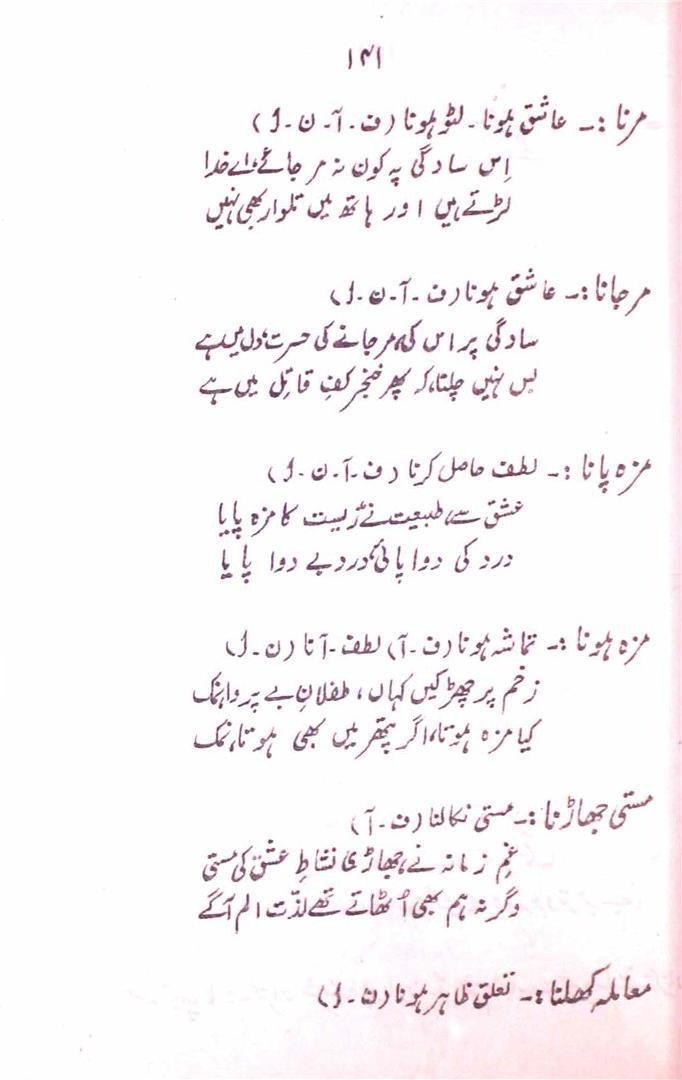 ۱۴۱
مرنا :- عاشق ہونا - لٹو ہونا (ف - آ - ن - ل)
اِس سادگی پہ کون نہ مر جائے، اے خدا
لڑتے ہیں اور ہاتھ میں تلوار بھی نہیں
مرجانا :- عاشق ہونا (ف - آ - ن - ل)
سادگی پر اس کی، مرجانے کی حسرت، دل میں ہے
بس نہیں چلتا، کہ پھر خنجر کفِ قاتل میں ہے
مزہ پانا :- لطف حاصل کرنا (ف - آ - ن - ل)
عشق سے، طبیعت نے زیست کا مزہ پایا
درد کی دوا پائی، درد بے دوا پایا
مزہ ہونا :- تماشہ ہونا (ف - آ) لطف آنا (ن - ل)
زخم پر چھڑکیں کہاں، طفلانِ بے پروا نمک
کیا مزہ ہوتا، اگر پتھر میں بھی ہوتا، نمک
مستی جھاڑنا :- مستی نکالنا (ف - آ)
غمِ زمانہ نے، جھاڑی نشاطِ عشق کی مستی
وگرنہ ہم بھی اُٹھاتے تھے لذّت الم آگے
معاملہ کھلنا :- تعلق ظاہر ہونا (ن - ل)